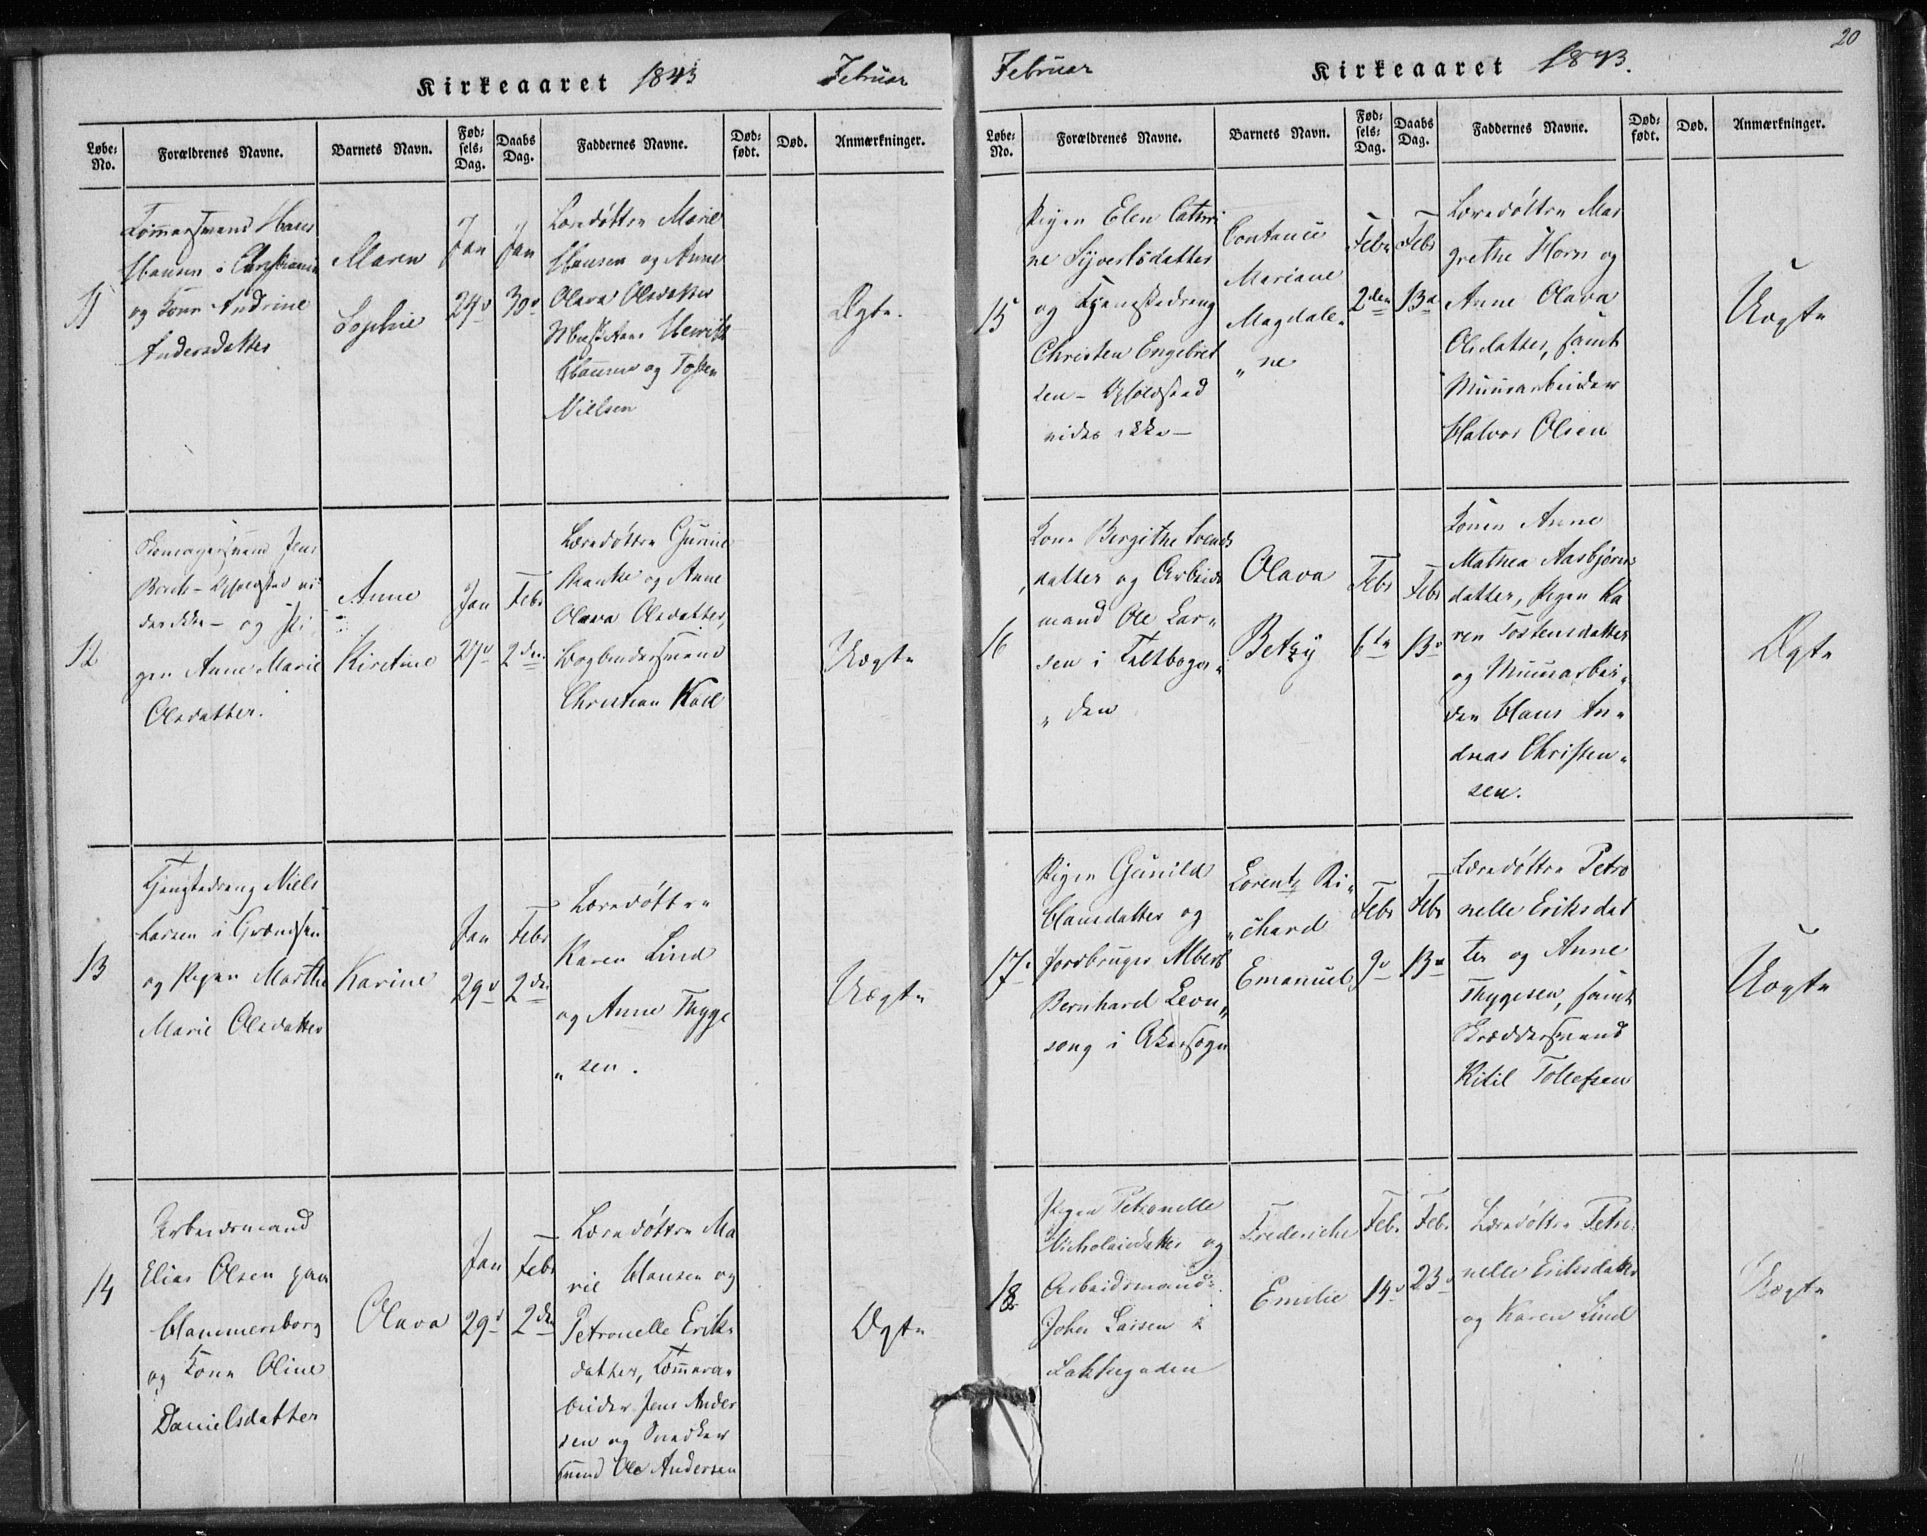 Kirkeaaret 1843
Februar
Løbe-No.
Forældrenes Navne.
Barnets Navn.
Fødsels-Dag.
Daabs Dag.
Faddernes Navne.
Dødfødt.
Død.
Anmærkninger.
11
Hansen i Christiania
og Kone Andrine
Andersdatter
Maren
Sophie
Jan
24d
Jan
30d
Læredøttre Marie
Hansen og Anne
Olava Olsdatter
Hansen og
Nielsen
Ægte.
12
Olsdatter.
gen Anne Marie
Anne
Kirstine
Jan
27d
Febr
2den
Læredøttre Gurine
og Anne
Olava Olsdatter,
Bogbindersvend
Christian
Uægte
13
Tjenestedreng Niels
Larsen i Grændsen
og Pigen Marthe
Marie Olsdatter
Karine
Jan
29d
Febr
2den
Læredøttre
Karen Lind
og Anne Thyge
„ sen.
Uægte
14
Arbeidsmand
Elias Olsen paa
Hammersborg
og Kone Oline
Danielsdatter
Olava
Jan
29d
Febr
2den
Læredøttre Ma
rie Hansen og
Petronelle Eriks
datter, Tømmerar
beider Jens Ander
sen og Snedker
svend Ole Andersen
Ægte
20
Februar
Kirkeaaret 1843.
Løbe-No.
Forældrenes Navne.
Barnets Navn.
Fødsels-Dag.
Daabs Dag.
Faddernes Navne.
Dødfødt.
Død.
Anmærkninger.
15
Pigen Elen Cathri
ne Syverlsdatter
og Tjenestedreng
Christen Engebret
sen – Opholdsted
vides ikke –
Contance
Mariane
Magdale„
„ ne
Febr
2den
Febr
13d
Læredøttre Mar
grethe Horn og
Anne Olava
Olsdatter, samt
Muurarbeider
Halvor Olsen
Uægte
16
Kone Bergithe Svends
datter og Arbeids
mand Ole Lar„
sen i Feltboga„
„ den
Olava
Betzy
Febr
6te
Febr
13d
Konen Anne
Mathea Aasbjørns
datter, Pigen Ka
ren Tostensdatter
og Muurarbei„
der Hans An„
dreas Christen„
sen.
Ægte
17.
Pigen Gunild
Hansdatter og
Jordbruger Albert
Bernhard Leon„
song i Akersogn
Lorentz Ri„
„chard
Emanuel
Febr
9d
Febr
13d
Læredøttre Petro
nelle Eriksdat
ter og Anne
Thygesen, samt
Skræddersvend
Kitil Tollefsen
Uægte
18
Pigen Petronelle
Nicholaisdatter og
Arbeidsmand
Johan Larsen i
Lakkegaden
Frederiche
Emilie
Febr
14d
Febr
23d
Læredøttre Petro
nelle Eriksdatter
og Karen Lind
Uægte